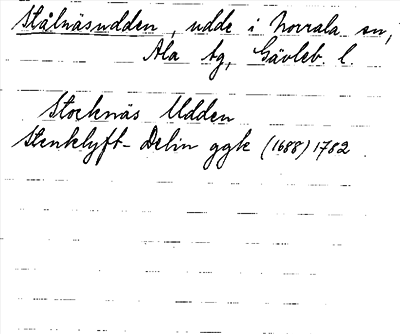 Stålnäsudden, udde i Norrala sn,
Ala tg, Gävleb. l.
Stocknäs Udden
Stenklyft-Delin ggk (1688) 1782